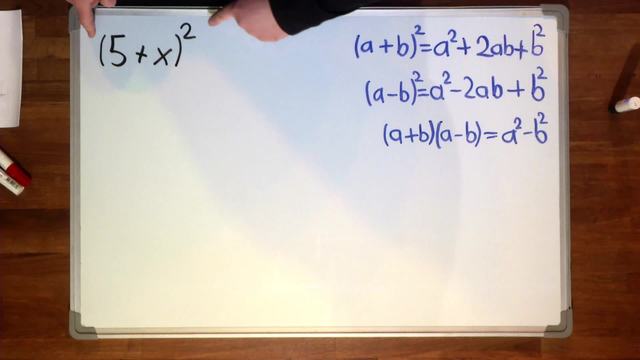 (5+x)²
(a+b)²=a²+2ab+b²
(a-b)²=a²-2ab+b²
(a+b)(a-b)=a²-b²